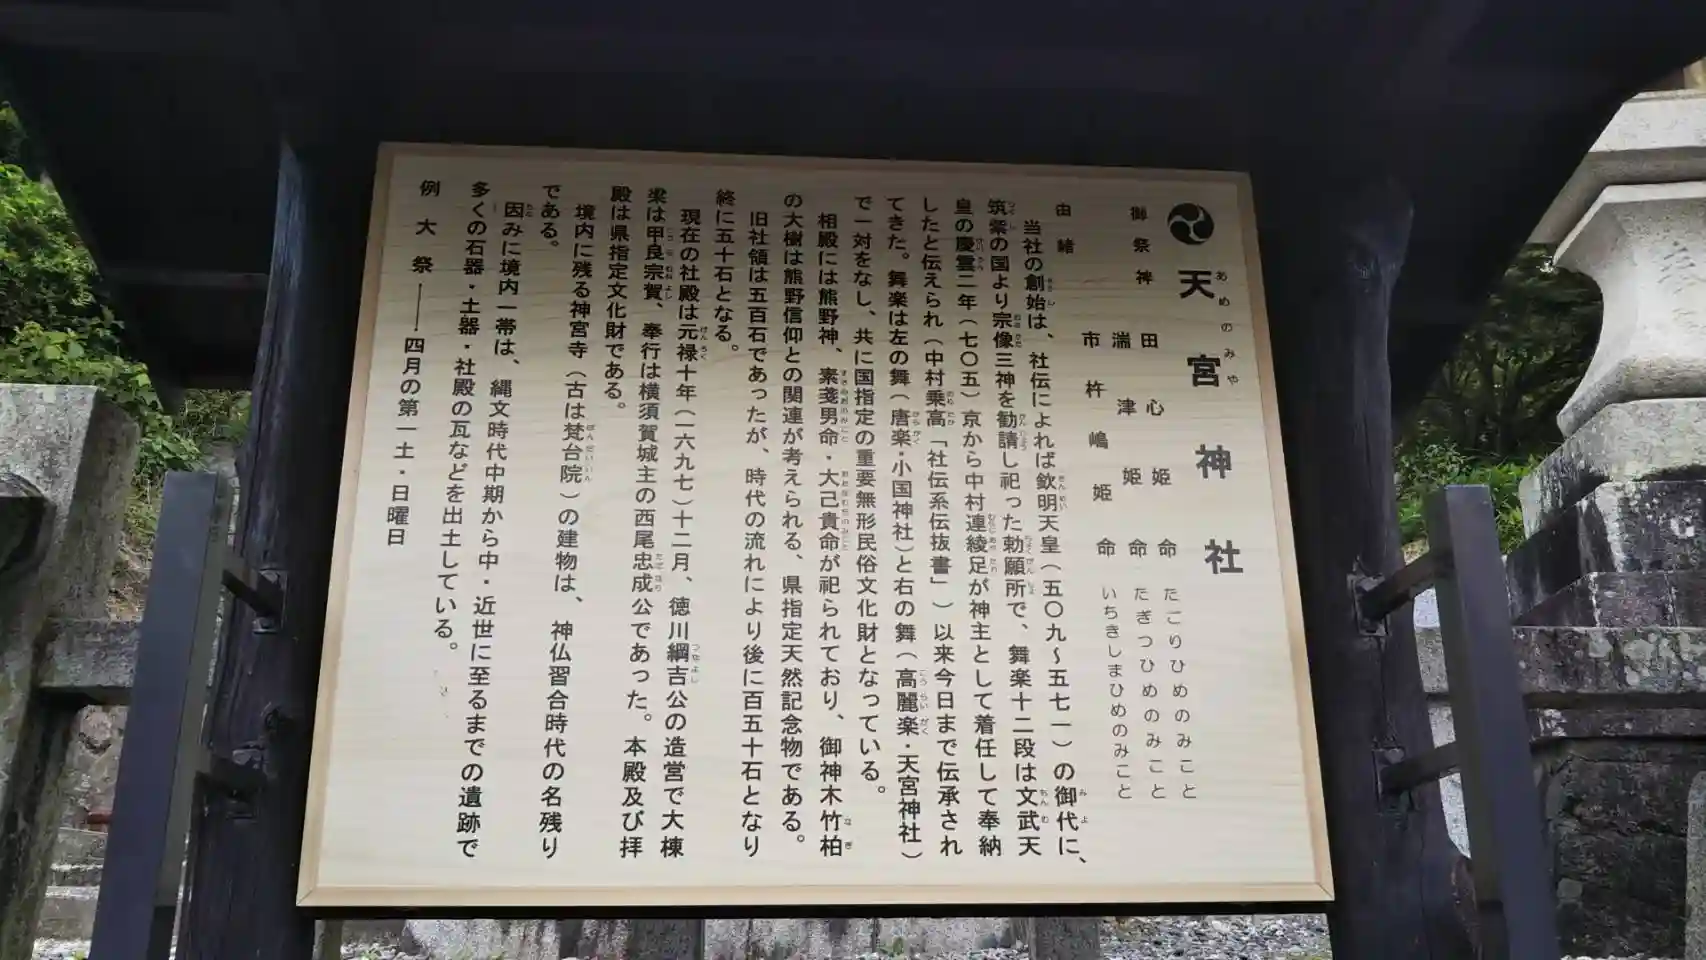 天宮神社
あめのみや
御祭神
田心姫命 たこりひめのみこと
湍津姫命 たぎつひめのみこと
市杵嶋姫命 いちきしまひめのみこと
由緒
当社の創始は、社伝によれば欽明天皇(五〇九~五七一)の御代に、
筑紫の国より宗像三神を勧請し祀った勅願所で、舞楽十二段は文武天
皇の慶雲二年(七〇五)京から中村連綾足が神主として着任して奉納
したと伝えられ(中村乗高「社伝系伝抜書」)以来今日まで伝承され
てきた。舞楽は左の舞(唐楽・小国神社)と右の舞(高麗楽・天宮神社)
で一対をなし、共に国指定の重要無形民俗文化財となっている。
相殿には熊野神、素戔男命・大己貴命が祀られており、御神木竹柏
の大樹は熊野信仰との関連が考えられる、県指定天然記念物である。
旧社領は五百石であったが、時代の流れにより後に百五十石となり
終に五十石となる。
現在の社殿は元禄十年(一六九七)十二月、徳川綱吉公の造営で大棟
梁は甲良宗賀、奉行は横須賀城主の西尾忠成公であった。本殿及び拝
殿は県指定文化財である。
境内に残る神宮寺(古は梵台院)の建物は、神仏習合時代の名残り
である。
因みに境内一帯は、縄文時代中期から中・近世に至るまでの遺跡で
多くの石器・土器・社殿の瓦などを出土している。
例大祭——四月の第一土・日曜日